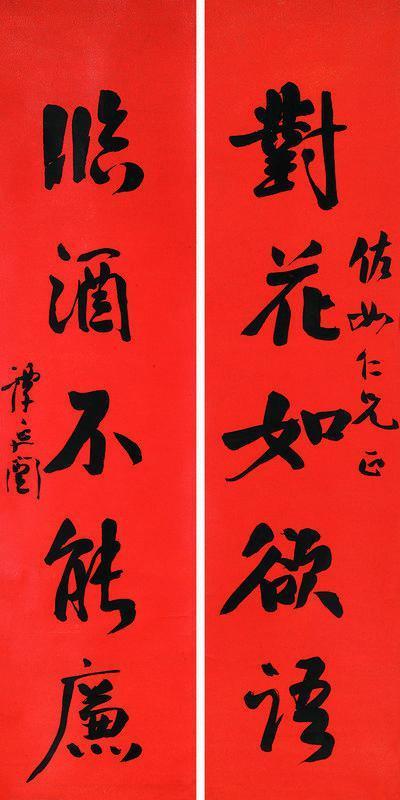 對花如欲語
佐如仁兄正
臨酒不能廉
譚延闓